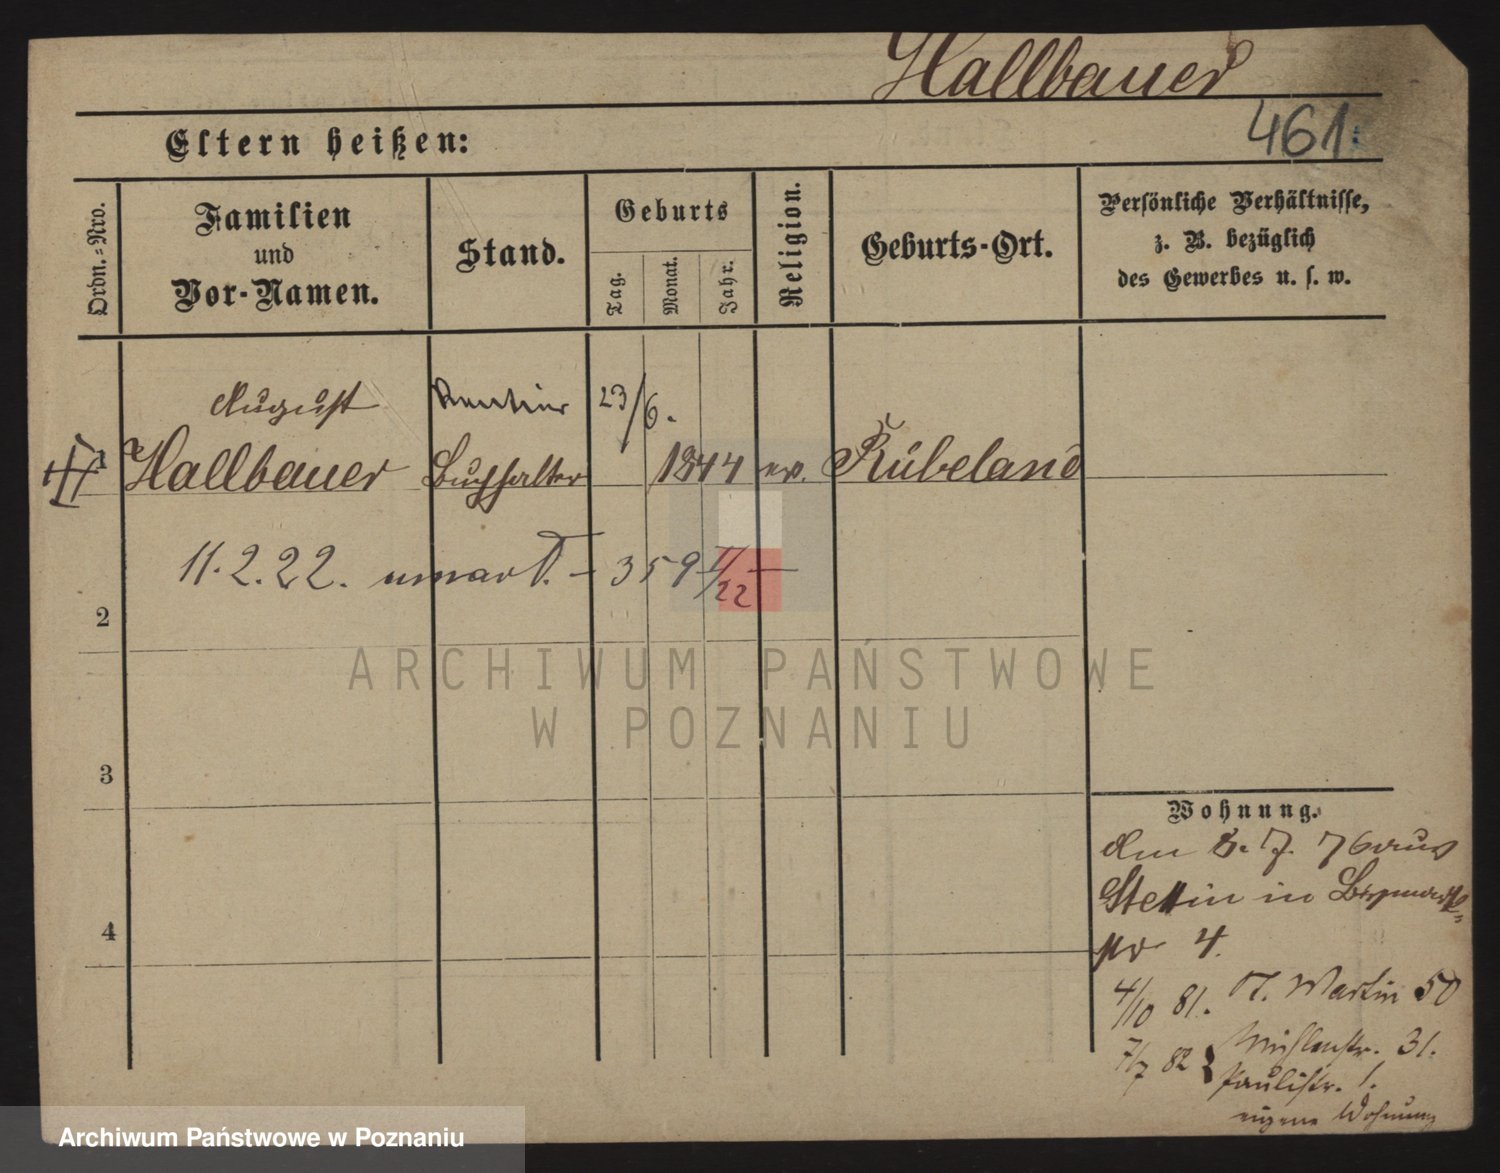 Hallbauer
461.
Eltern heißen:
Ordn.-Nro.
Familien
und
Vor-Namen.
Stand.
Geburts
Tag.
Monat.
Jahr.
Religion.
Geburts-Ort.
Persönliche Verhältnisse,
z. B. bezüglich
des Gewerbes u. s. w.
August Rentier 23/6.
1 Hallbauer Buchhalter 1844 ev. Rübeland
11.2.22. umarł. - 359 II/22 -
2
3
4
ARCHIWUM PAŃSTWOWE
W POZNANIU
Wohnung.
den 8. 7. 76 aus
Stettin in Bismark-
str 4.
4/10 81. St. Martin 50
7/7 82 Mühlenstr. 31.
Paulistr. 1.
eigene Wohnung
Archiwum Państwowe w Poznaniu